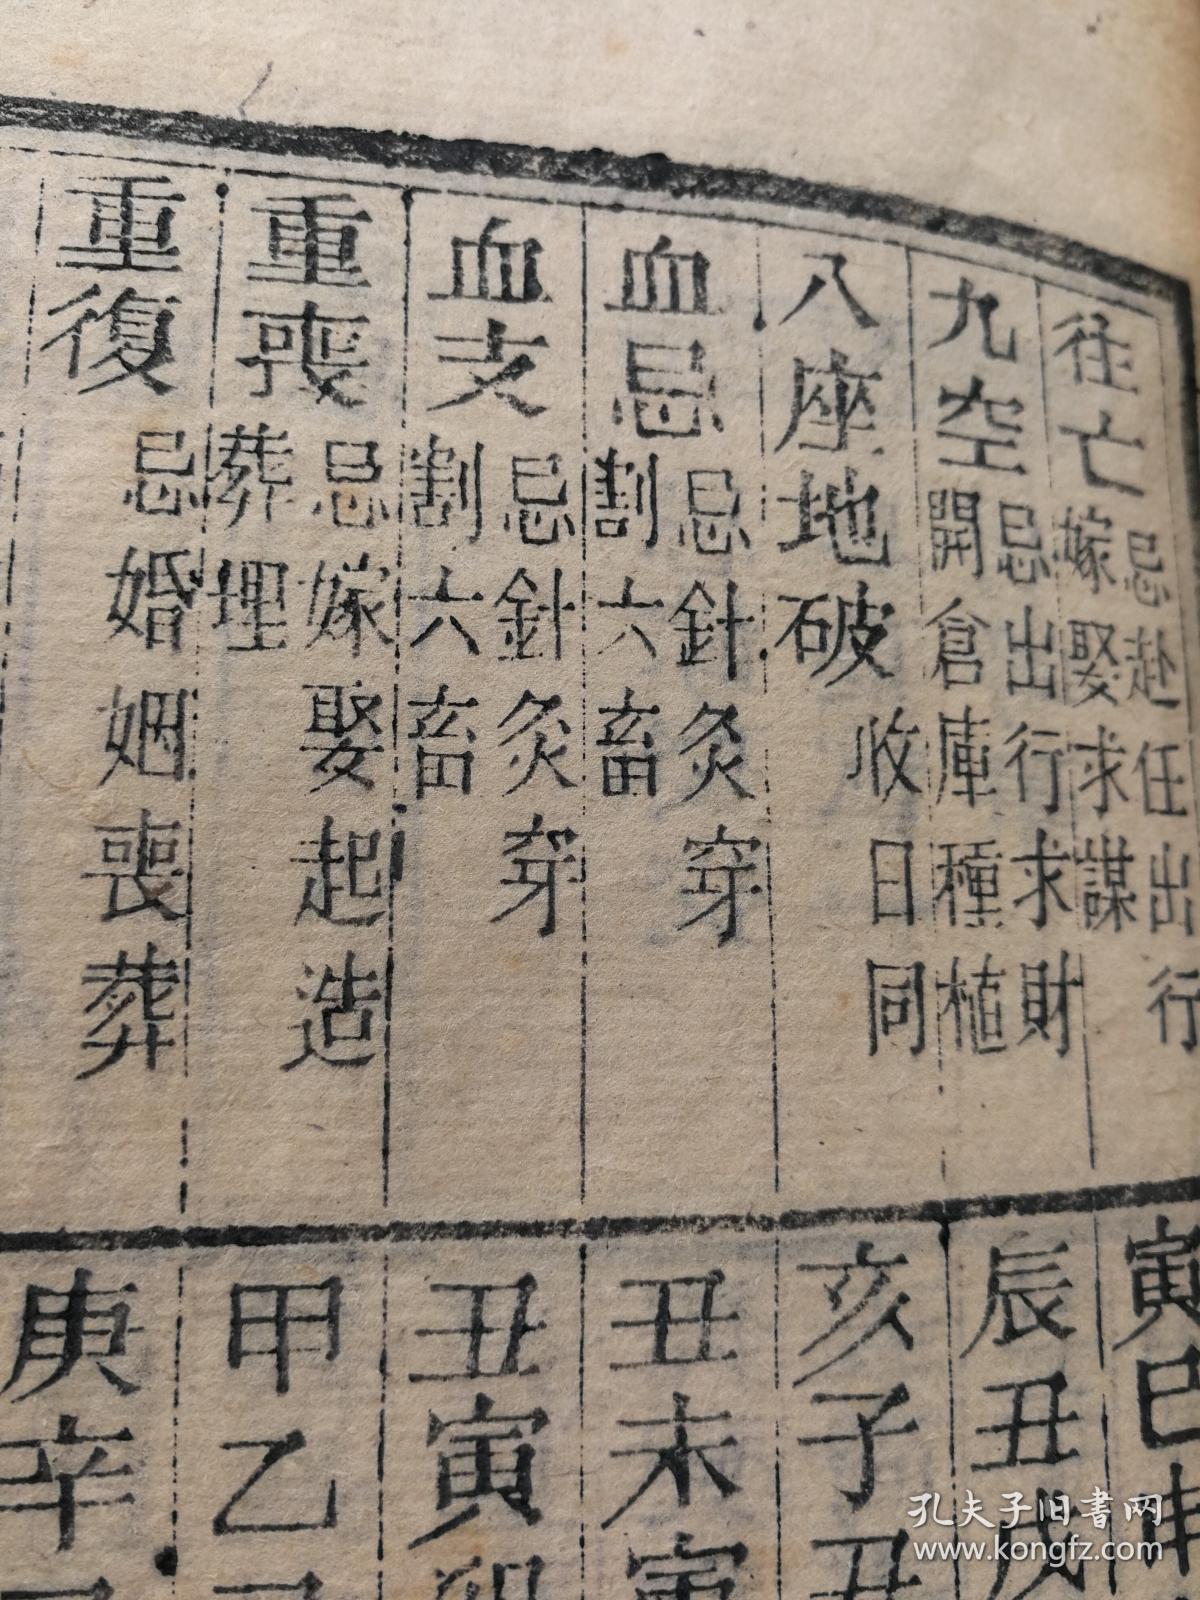 往亡忌赴任出行嫁娶求謀
九空忌出行求財開倉庫種植
八座地破收日同
血忌忌針灸穿割六畜
血支忌針灸穿割六畜
重喪忌嫁娶起造葬埋
重復忌婚姻喪葬
寅巳申
辰丑戌
亥子丑
丑未寅
丑寅卯
甲乙
庚辛
孔夫子旧书网
www.kongfz.com